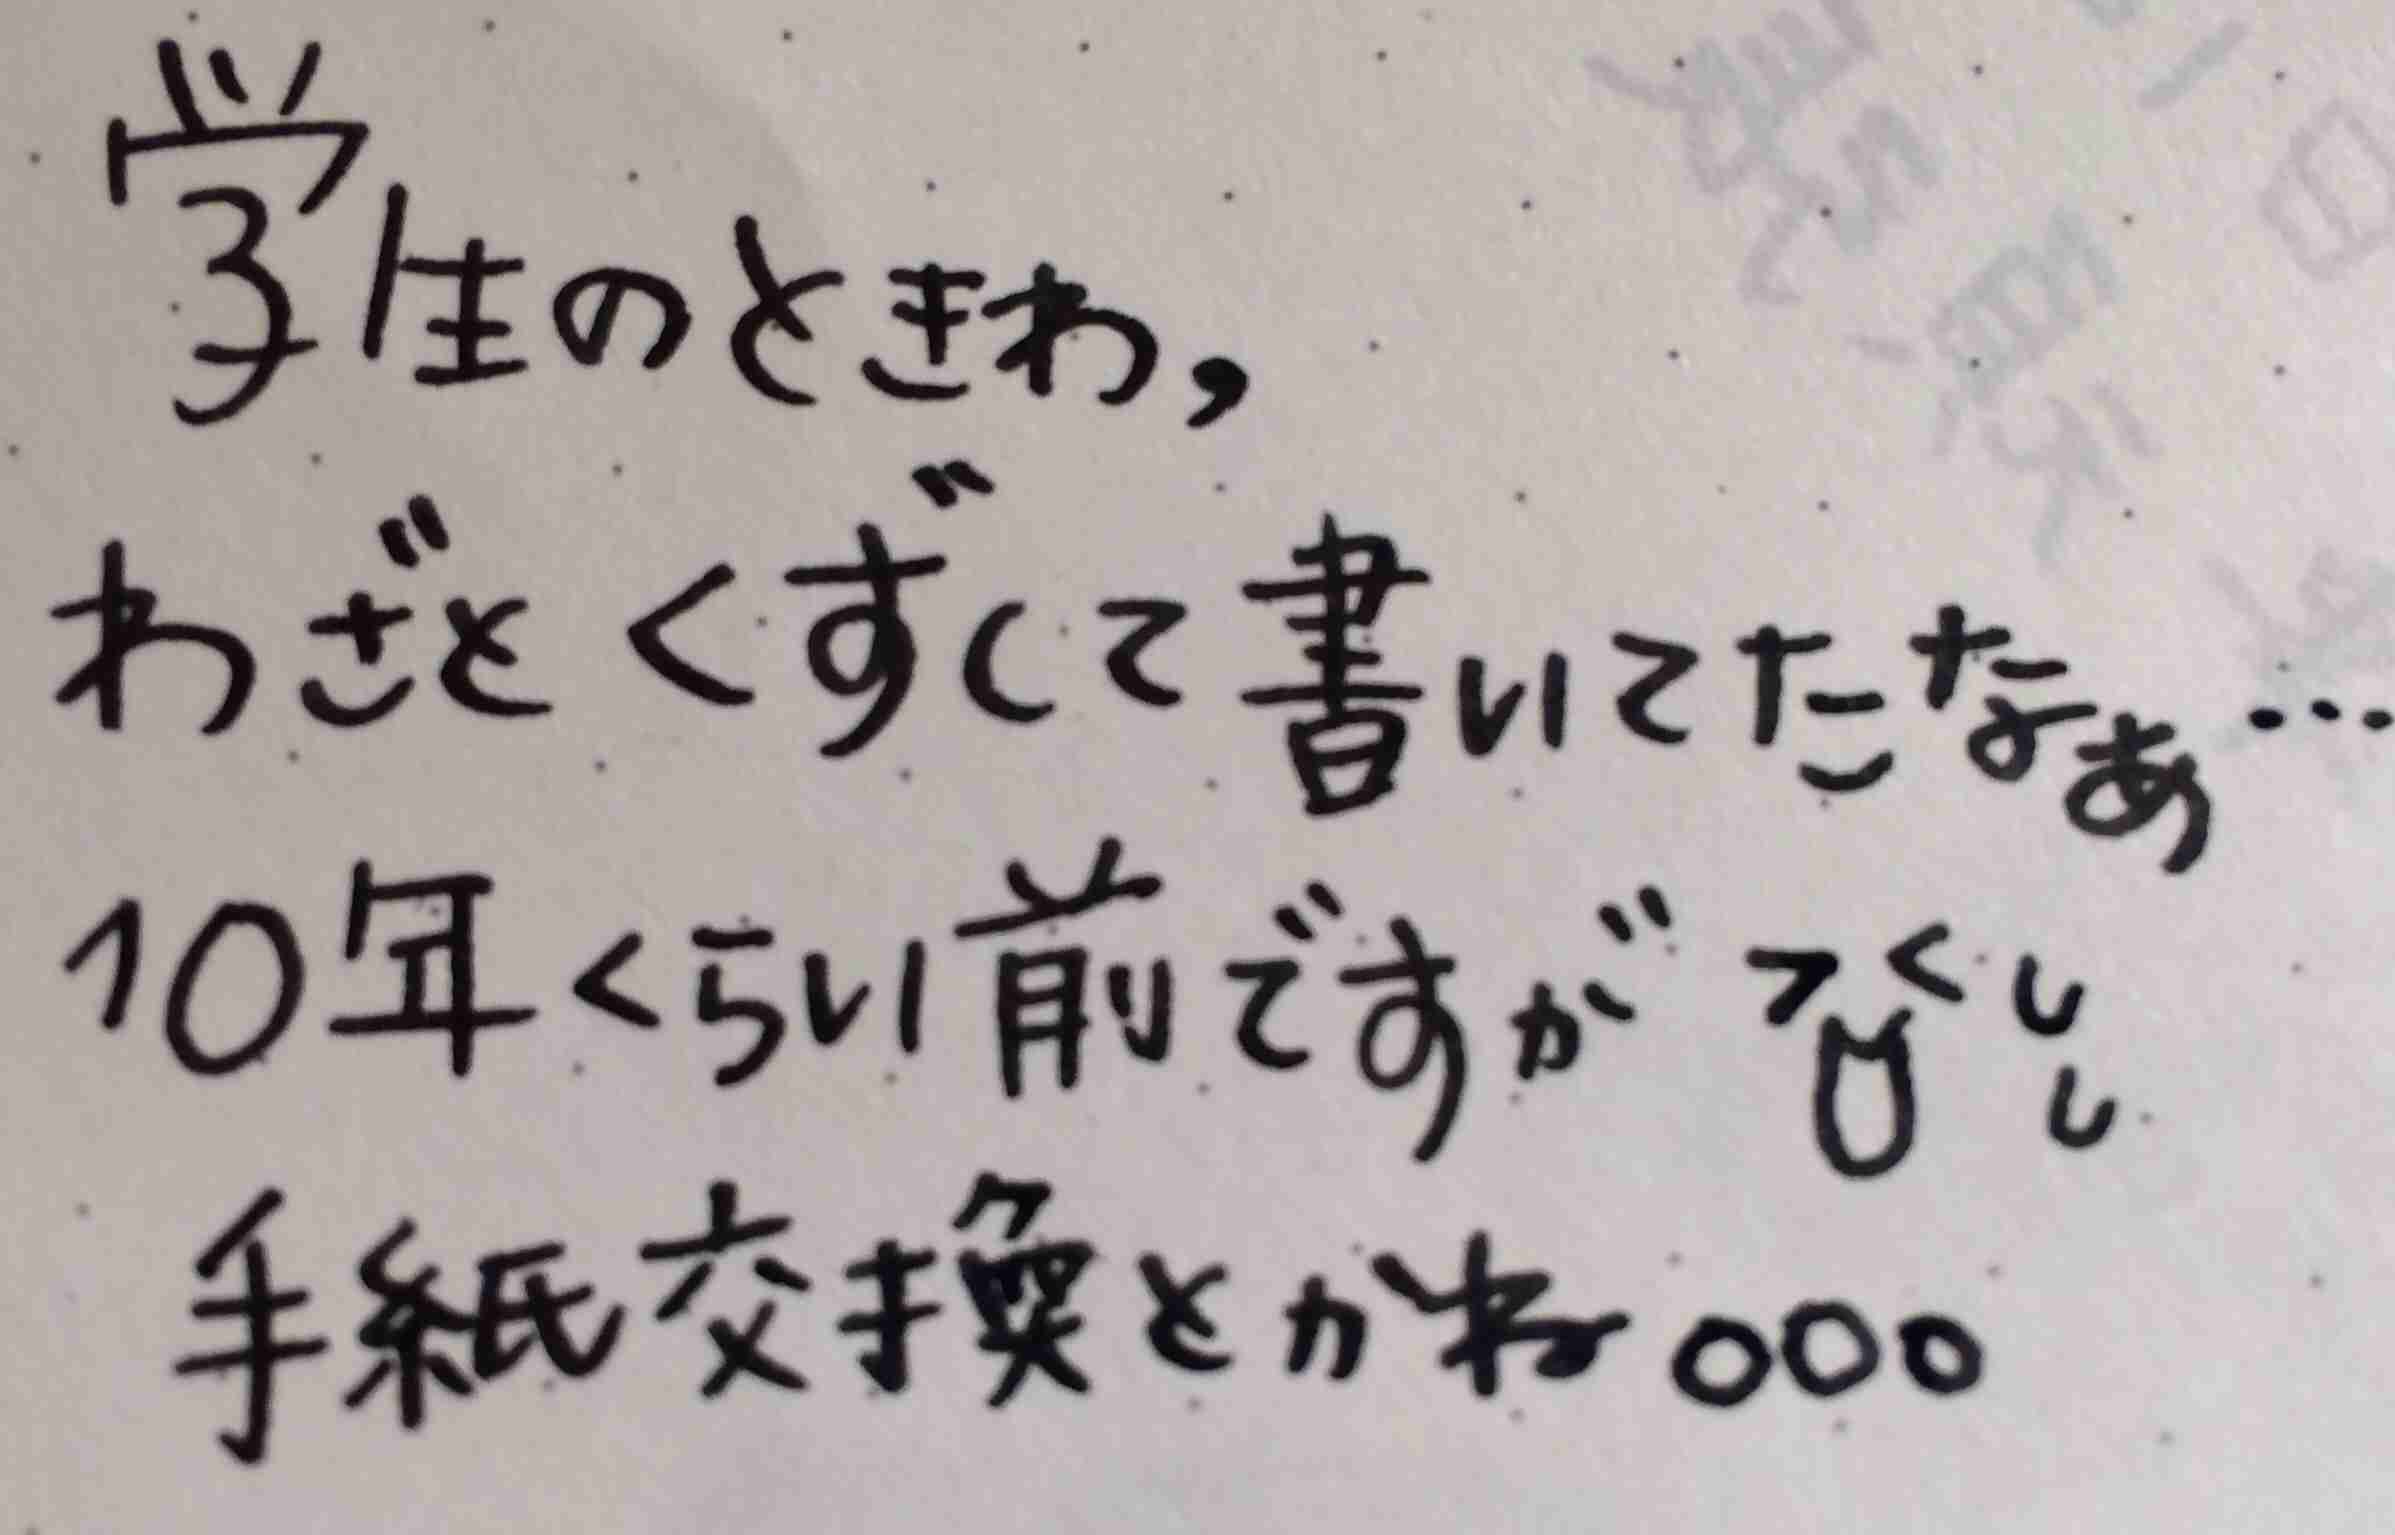 学生のときわ,
わざとくずして書いてたなぁ…
10年くらい前ですが
手紙交換とかね。。。